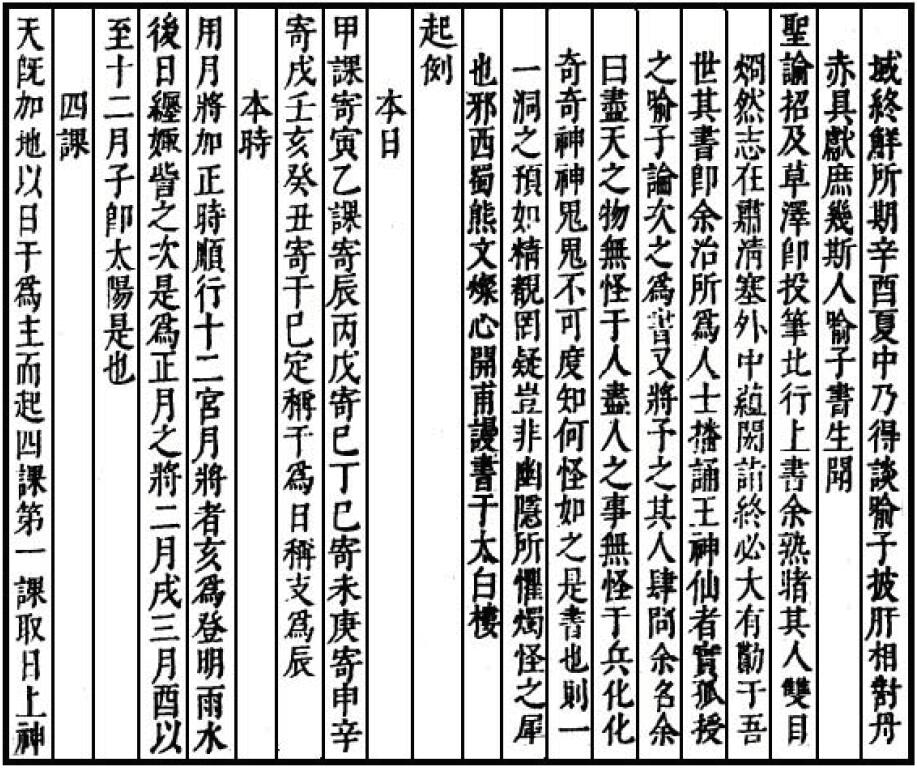 域終鮮所期辛酉夏中乃得談喻子披肝相對丹
赤具獻庶幾斯人喻子書生聞
聖諭招及草澤卽投筆北行上書余熟睹其人雙目
烱然志在肅清塞外中蘊閎詣終必大有勷于吾
世其書卽余治所爲人士播誦王神仙者實孤授
之喻子論次之爲書又將予之其人肆問余名余
曰盡天之物無怪于人盡人之事無怪于兵化化
奇奇神神鬼鬼不可度知何怪如之是書也則一
一洞之預如精覩罔疑豈非幽隱所懼燭怪之犀
也邪西蜀熊文燦心開甫謾書于太白樓
起例
本日
甲課寄寅乙課寄辰丙戊寄巳丁巳寄未庚寄申辛
寄戌壬亥癸丑寄干巳定稱干爲日稱支爲辰
本時
用月將加正時順行十二宮月將者亥爲登明雨水
後日纏娵訾之次是爲正月之將二月戌三月酉以
至十二月子卽太陽是也
四課
天旣加地以日干爲主而起四課第一課取日上神